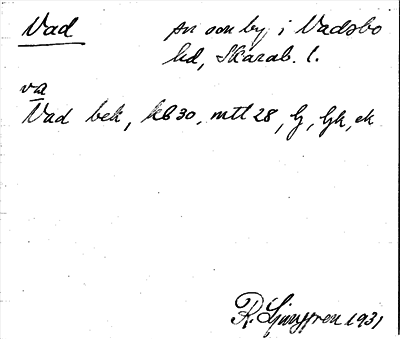 Vad på sn by i Vadsbo
hd, Skarab. l.
va
Vad bek, kb 30, mtl 28, lj, ljk, ek
R. Ljunggren 1931